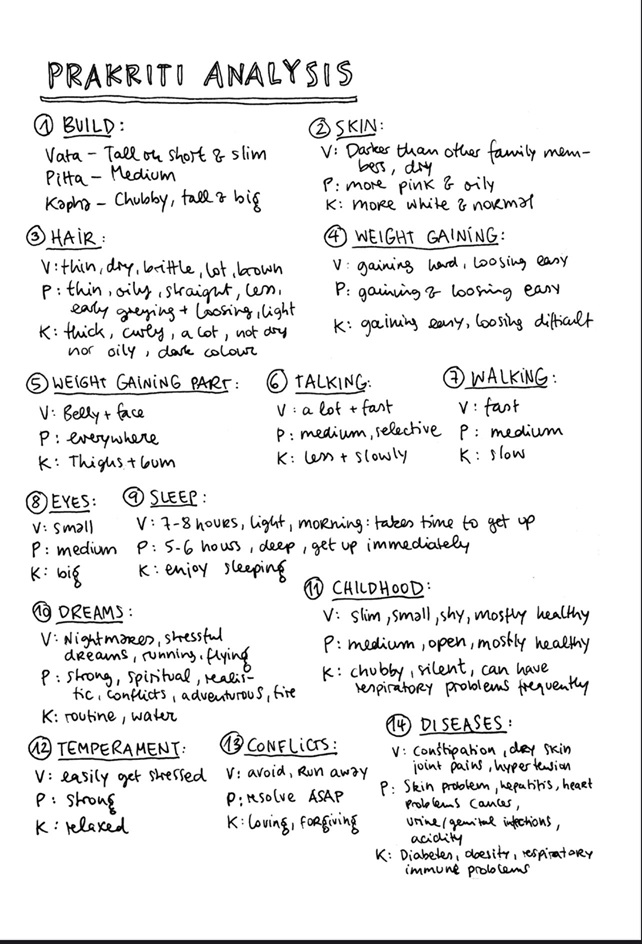 PRAKRITI ANALYSIS
① BUILD:
Vata – Tall or short & slim
Pitta – Medium
Kapha – Chubby, tall & big
② SKIN:
V: Darker than other family mem-
bers, dry
P: more pink & oily
K: more white & normal
③ HAIR:
V: thin, dry, brittle, lot, brown
P: thin, oily, straight, less,
early greying + loosing, light
K: thick, curly, a lot, not dry
nor oily, dark colour
④ WEIGHT GAINING:
V: gaining hard, loosing easy
P: gaining & loosing easy
K: gaining easy, loosing difficult
⑤ WEIGHT GAINING PART:
V: Belly + face
P: everywhere
K: Thighs + bum
⑥ TALKING:
V: a lot + fast
P: medium, selective
K: less + slowly
⑦ WALKING:
V: fast
P: medium
K: slow
⑧ EYES:
V: small
P: medium
K: big
⑨ SLEEP:
V: 7-8 hours, light, morning: takes time to get up
P: 5-6 hours, deep, get up immediately
K: enjoy sleeping
⑩ DREAMS:
V: Nightmares, stressful
dreams, running, flying
P: strong, spiritual, realis-
tic, conflicts, adventurous, fire
K: routine, water
⑪ CHILDHOOD:
V: slim, small, shy, mostly healthy
P: medium, open, mostly healthy
K: chubby, silent, can have
respiratory problems frequently
⑫ TEMPERAMENT:
V: easily get stressed
P: strong
K: relaxed
⑬ CONFLICTS:
V: avoid, run away
P: resolve ASAP
K: loving, forgiving
⑭ DISEASES:
V: Constipation, dry skin
joint pains, hypertension
P: Skin problem, hepatitis, heart
problems cancer,
urine/genital infections,
acidity
K: Diabetes, obesity, respiratory
immune problems